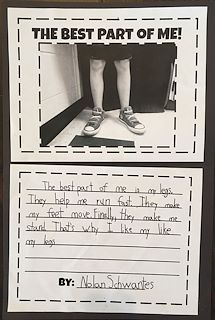 THE BEST PART OF ME!
The best part of me is my legs.
They help me run fast. They make
my feet move. Finally, they make me
stand. That's why I like my like
my legs
BY: Nolan Schwantes